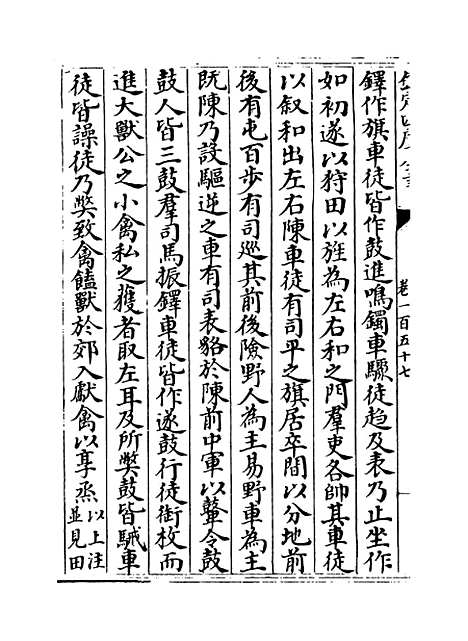 欽定四庫全書
卷一百五十七
鐸作旗車徒皆作鼓進鳴鐲車驟徒趨及表乃止坐作
如初遂以狩田以旌為左右和之門羣吏各帥其車徒
以叙和出左右陳車徒有司平之旗居卒間以分地前
後有屯百步有司巡其前後險野人為主易野車為主
既陳乃設驅逆之車有司表貉於陳前中軍以鼙令鼓
鼓人皆三鼓羣司馬振鐸車徒皆作遂鼓行徒銜枚而
進大獸公之小禽私之獲者取左耳及所弊鼓皆駴車
徒皆譟徒乃弊致禽饁獸於郊入獻禽以享烝以上注
並見田